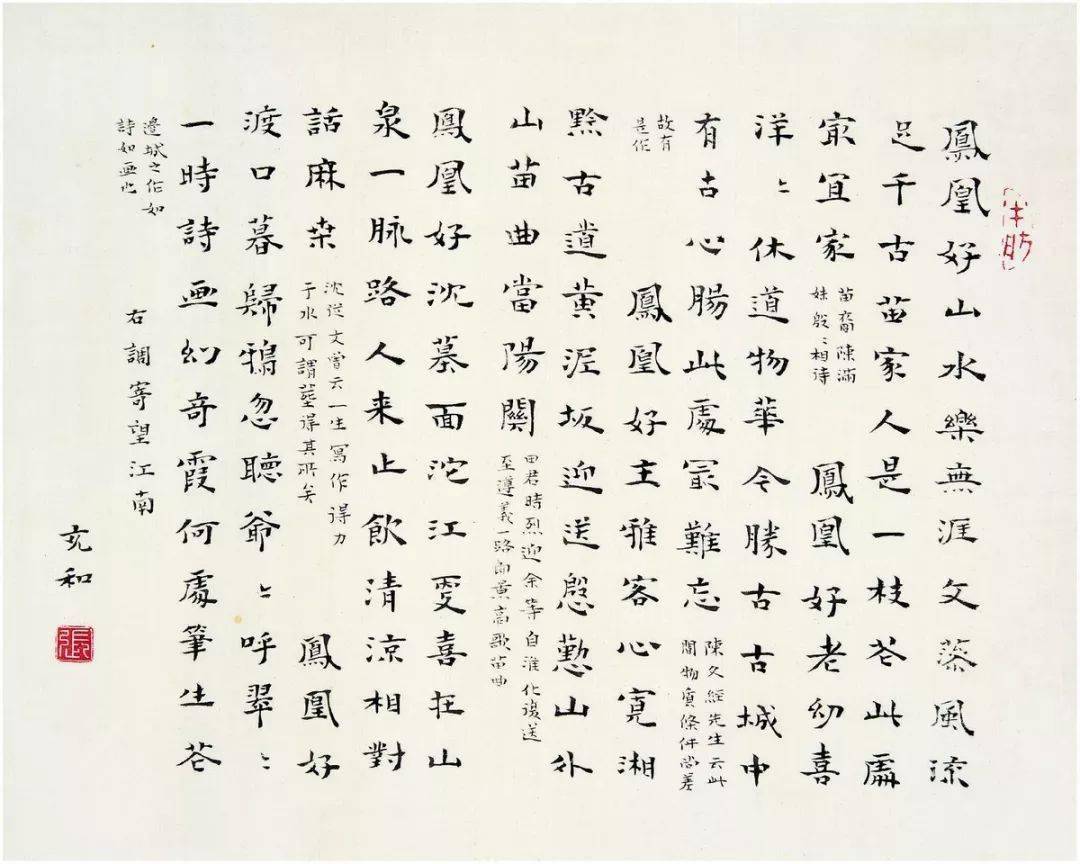 鳳凰好山水樂無涯文藻風流
足千古苗家人是一枝花此處
㝡宜家
苗裔陳滿
妹殷〻相待
鳳凰好老幼喜
洋〻休道物華今勝古古城中
有古心腸此處㝡難忘
陳久經先生云此
間物質條件尚差
故有
是作
鳳凰好主雅客心寬湘
黔古道黃泥坂迎送慇懃山外
山苗曲當陽關
田君時烈迎余等自淮化復送
至遵義一路高歌苗曲
鳳凰好沈墓面沱江更喜在山
泉一脉路人来止飲清涼相對
話麻桒
沈從文曾云一生寫作得力
于水可謂塟得其所矣
鳳凰好
渡口暮歸鴉忽聽爺〻呼翠〻
一時詩画幻奇霞何處筆生花
邊城之作如
詩如画也
右調寄望江南
充和
張